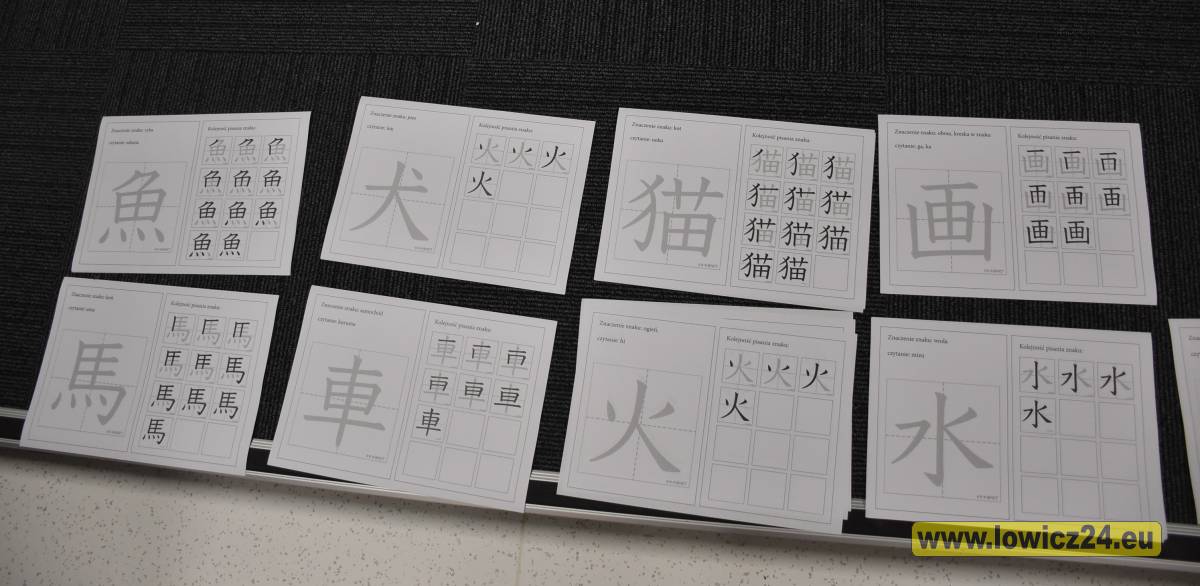 Znaczenie znaku: ryba
czytanie: sakana
魚
Kolejność pisania znaku:
魚 魚 魚
魚 魚 魚
魚 魚 魚
魚 魚
Znaczenie znaku: pies
czytanie: inu
犬
Kolejność pisania znaku:
火 火 火
火
Znaczenie znaku: kot
czytanie: neko
猫
Kolejność pisania znaku:
猫 猫 猫
猫 猫 猫
猫 猫 猫
猫 猫
Znaczenie znaku: obraz, kreska w znaku
czytanie: ga, ka
画
Kolejność pisania znaku:
画 画 画
画 画 画
画 画
Znaczenie znaku: koń
czytanie: uma
馬
Kolejność pisania znaku:
馬 馬 馬
馬 馬 馬
馬 馬 馬
馬
Znaczenie znaku: samochód
czytanie: kuruma
車
Kolejność pisania znaku:
車 車 車
車 車 車
車
Znaczenie znaku: ogień
czytanie: hi
火
Kolejność pisania znaku:
火 火 火
火
Znaczenie znaku: woda
czytanie: mizu
水
Kolejność pisania znaku:
水 水 水
水
www.lowicz24.eu